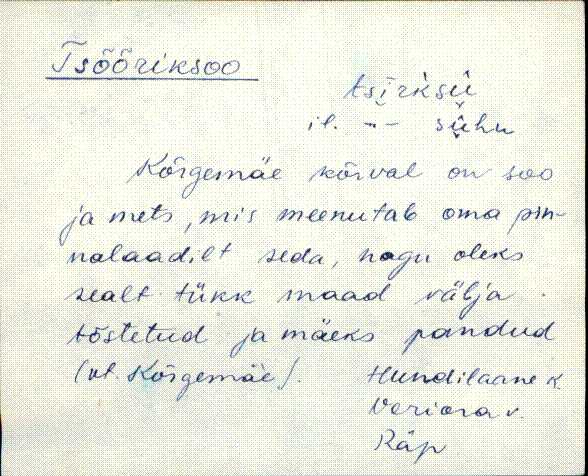 Tsõõriksoo
tsīrksü
il. -"- sühu
Kõrgemäe kõrval on soo
ja mets, mis meenutab oma pin-
nalaadilt seda, nagu oleks
sealt tükk maad välja
tõstetud ja mäeks pandud
(vt. Kõrgemäe).
Hundilaane k.
Veriora v.
Räp